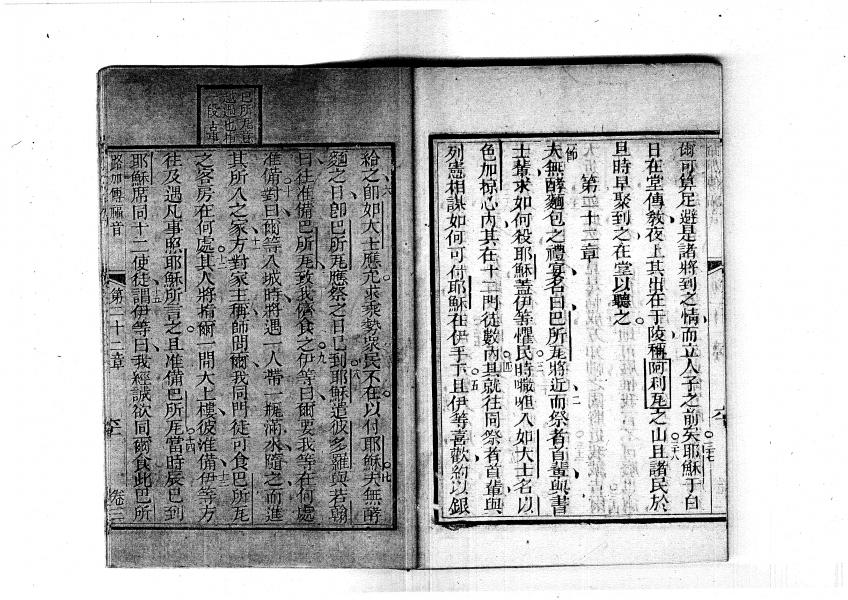 爾可算足避是諸將到之情而立人子之前矣耶穌于白
三七
三八
日在堂傳教夜上其出在于陵稱阿利瓦之山且諸民於
旦時早聚到之在堂以聽之
第二十二章
節
夫無酵麵包之禮宴名曰巴所瓦將近而祭者首輩與書
二
士輩求如何役耶穌蓋伊等懼民時
三
入如大士名以
色加掠心內其在十二門徒數內其就往同祭者首輩與
四
五
列憲相謀如何可付耶穌在伊手下且伊等喜歡約以銀
給之即如大士應允求乘勢眾民不在以付耶穌夫無酵
六
七
麵之日即巴所瓦應祭之日已到耶穌遣彼多羅與若翰
八
曰往準備巴所瓦致我儕食之伊等曰爾要我等在何處
九
準備對曰爾等入城時將遇一人帶一槐滿水隨之而進
十
其所入之家方對家主稱師問爾我同門徒可食巴所瓦
十一
之客房在何處其人將指爾一開大上樓彼準備伊等方
十二
十三
往及遇凡事照耶穌所言之且準備巴所瓦當時辰已到
十四
耶穌席同十二使徒謂伊等曰我經誠欲同爾食此巴所
十五
路加傳福音
第二十二章
卷三